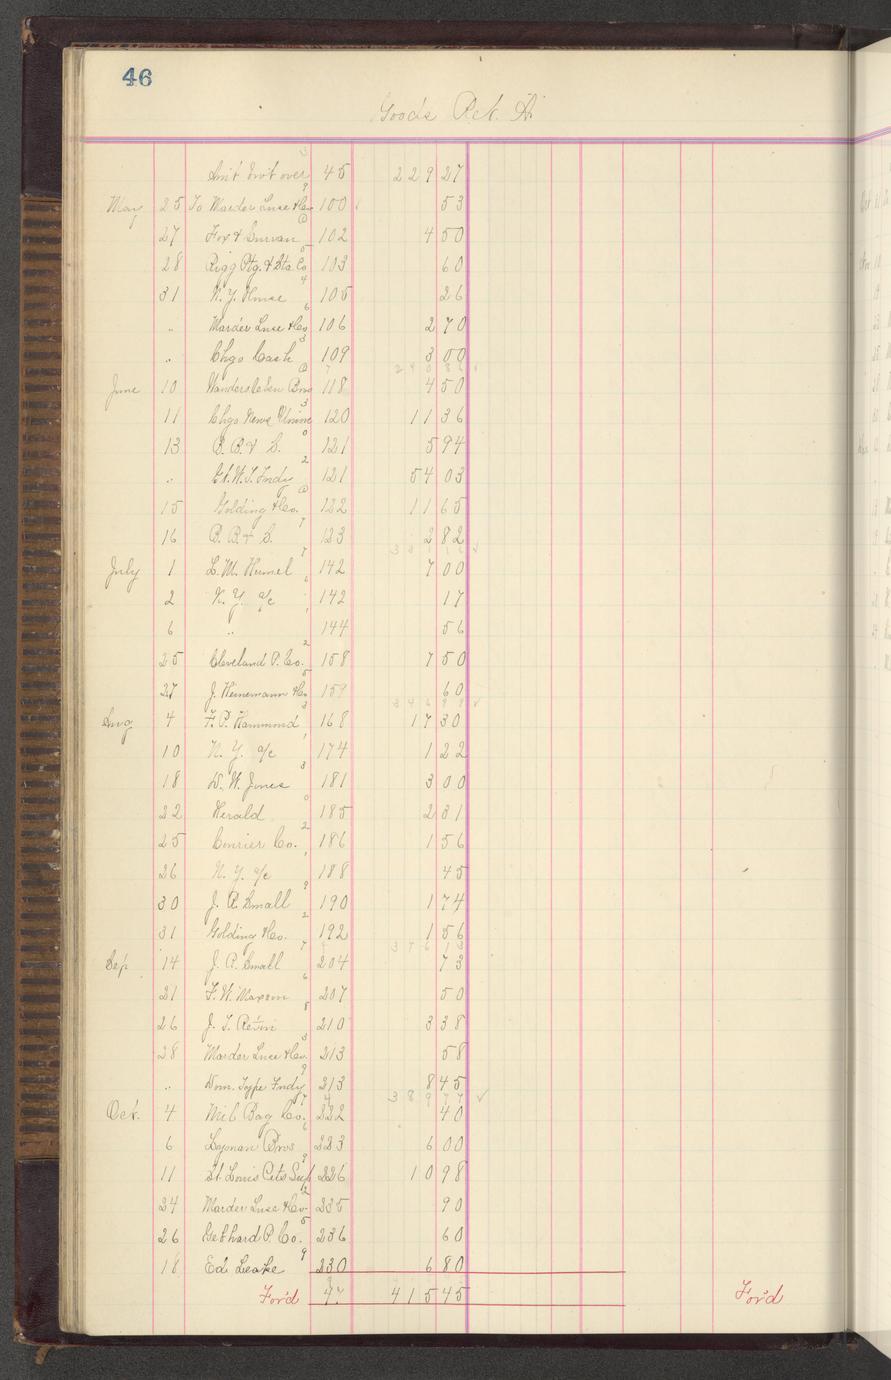 46
Goods Ret. A/c
Am't bro't over 45 229 27
May 25 To Marder Luse & Co 100 53
27 Fox & 102 4 50
28 Rigg Ptg. & Sta Co 103 60
31 N. Y. House 105 26
" Marder Luse & Co 106 2 70
" Chgo Cash 109 3 00
240 86 ✓
June 10 Wandersleben Bros 118 4 50
11 Chgo News Union 120 11 36
13 B. B. & S. 121 5 94
" Gt. W. T. Fndy 121 54 03
15 Golding & Co. 122 11 65
16 B. B & S. 123 2 82
331 16 ✓
July 1 L. M. Humel 142 7 00
2 N. Y. a/c 142 17
6 " 144 56
25 Cleveland P. Co. 158 7 50
27 J. Heinemann & Co 159 60
346 99 ✓
Aug 4 F. P. Hammond 168 17 30
10 N. Y. a/c 174 1 22
18 D. W. Jones 181 3 00
22 Herald 185 2 31
25 Courier Co. 186 1 56
26 N. Y. a/c 188 45
30 J. R. Small 190 1 74
31 Golding & Co. 192 1 56
376 13
Sep. 14 J. R. Small 204 73
21 F. W. 207 50
26 J. T. 210 3 38
28 Marder Luse & Co. 213 58
" Dom. Type Fndy 213 8 45
389 77 ✓
Oct. 4 Mil Bag Co. 222 40
6 Lyman Bros 223 6 00
11 St. Louis Sup 226 10 98
24 Marder Luse & Co. 235 90
26 Gebhard P. Co. 236 60
18 Ed Leake 230 6 80
For'd 47 415 45 For'd